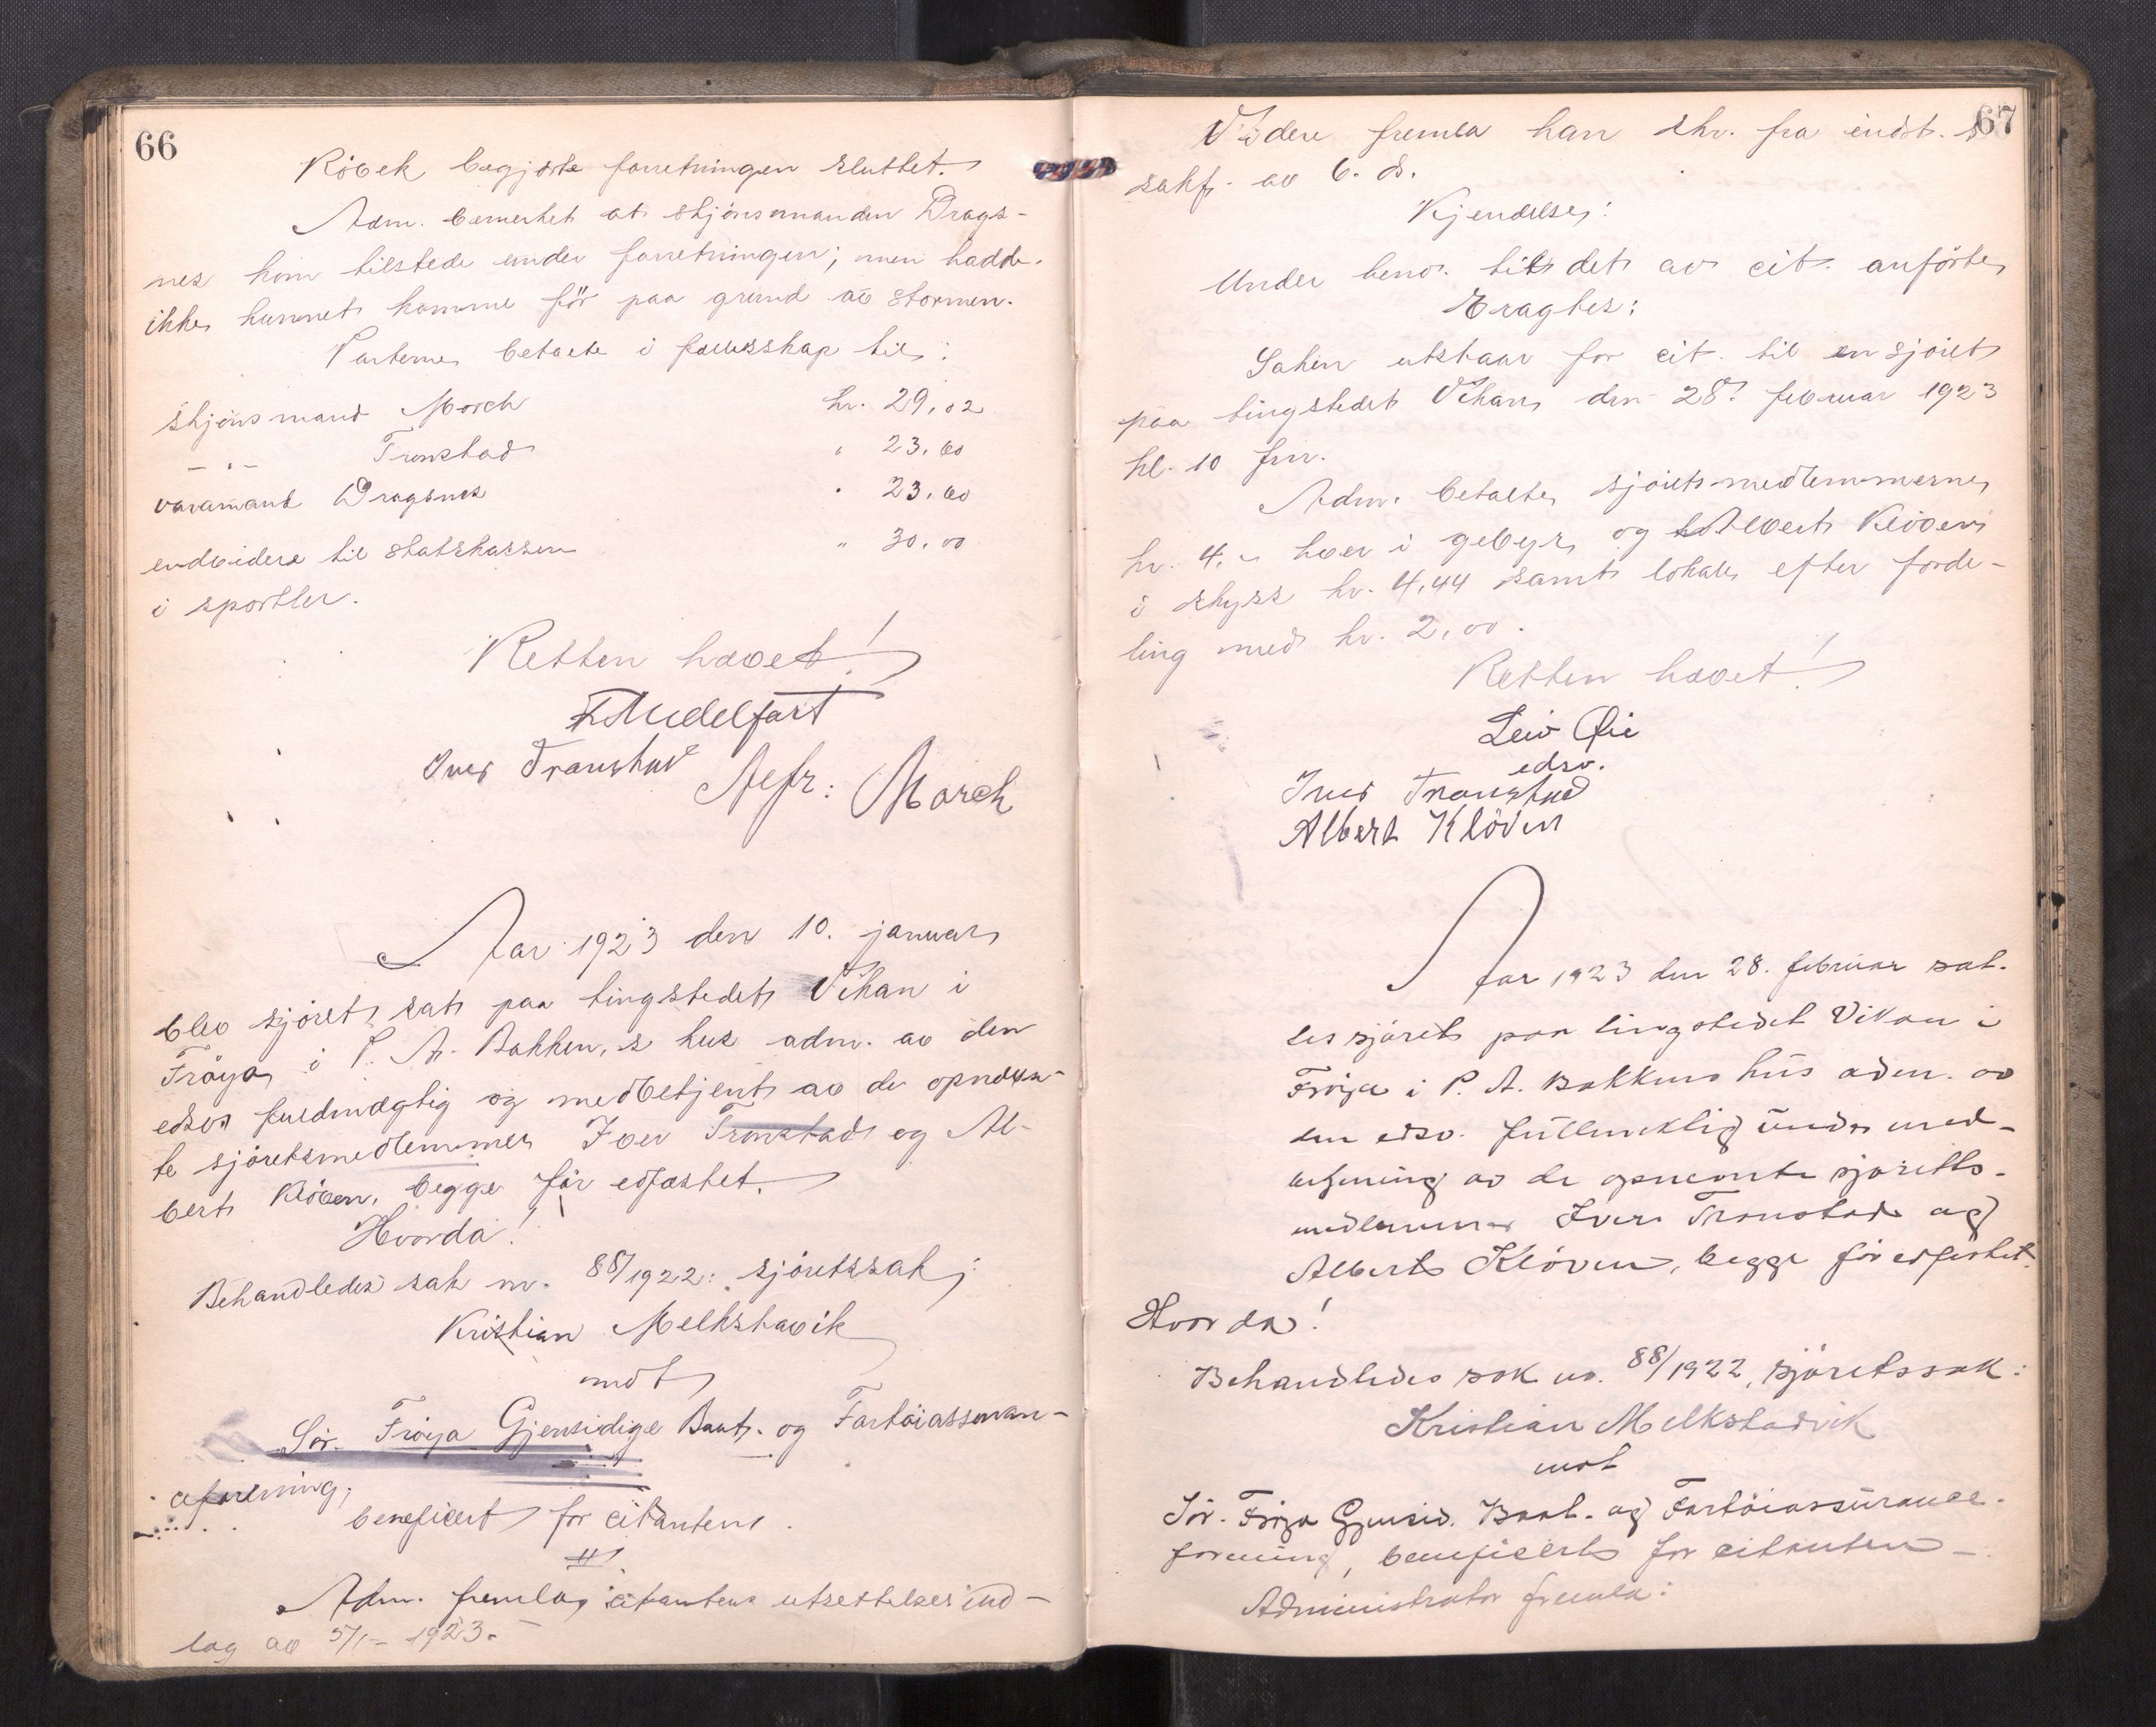 66
Rövek begjærte forretningen sluttet.
Adm. bemerket at skjönsmanden Drags-
nes kom tilstede under forretningen; men hadde
ikke kunnet komme för paa grund av stormen.
Parterne betalte i fællesskap til:
Skjönsmand Morch kr. 29,02
— " — Tronstad " 23.60
varamand Dragsnes " 23.60
endvidere til statskassen " 30.00
i sportler.
Retten hævet!
Mudelfart
Iver Tronstad Alfr: Morch
Aar 1923 den 10. januar
blev sjöret sat paa tingstedet Vikan i
Fröya i P. A. Bakken,s hus adm. av den
edsv. fuldmægtig og medbetjent av de opnævn-
te sjöretsmedlemmer Iver Tronstad og Al-
bert Klöven, begge för edfæstet.
Hvorda!
Behandledes sak nr. 88/1922: sjöretssak;
Kristian Melkstavik
mot
Sör-Fröya Gjensidige Baat- og Fartöiassuran-
ceforening;
beneficert for citanten.
Adm. fremla citantens utsettelsesind-
læg av 5/1- 1923.-
67
Videre fremla han skr. fra indst. s
sakf. av 6. ds.
Kjendelse:
Under henv. til det av cit. anförte
Eragtes:
Saken utstaar for cit. til en sjöret
paa tingstedet Vikan den 28. februar 1923
kl. 10 fm.
Adm. betalte sjöretsmedlemmerne
kr. 4.- hver i gebyr og Albert Klöven
i skyss kr. 4,44 samt lokale efter forde-
ling med kr. 2,00.
Retten hævet!
Leiv Øie
edsv.
Iver Tronstad
Albert Klöven
Aar 1923 den 28. februar sat-
tes sjöret paa tingstedet Vikan i
Fröya i P. A. Bakkens hus adm. av
den edsv. fullmektig under med-
betjening av de opnevnte sjöretts-
medlemmer Iver Tronstad og
Albert Klöven, begge för edfestet.
Hvorda!
Behandledes sak nr. 88/1922, sjöretssak:
Kristian Melkstadvik
mot
Sör-Fröya Gjensid. Baat- og Fartöiassurance-
forening, beneficert for citanten -.
Administrator fremla: